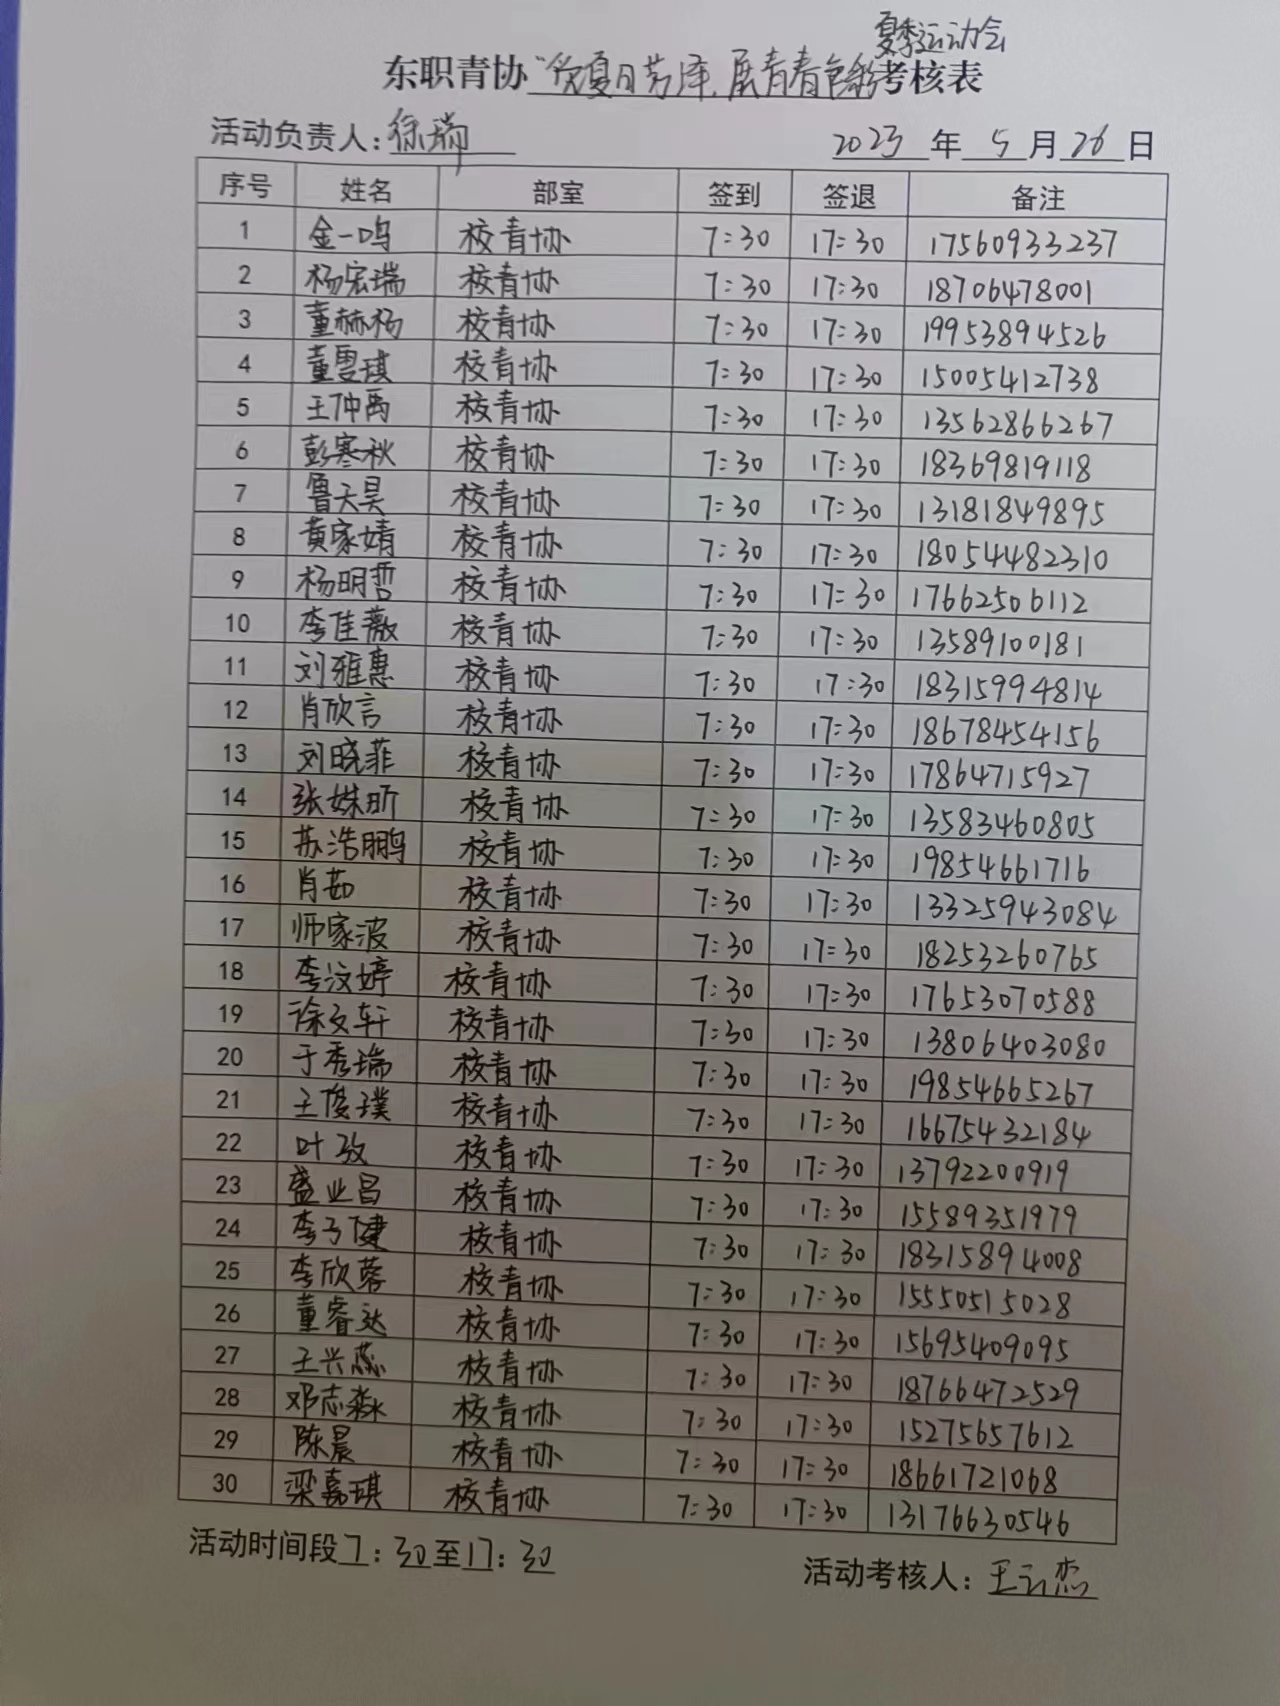 夏季运动会
东职青协“觅夏日芳泽，展青春色彩”考核表
活动负责人：徐瑞 2023年5月26日
序号 姓名 部室 签到 签退 备注
1 金一鸣 校青协 7:30 17:30 17560933237
2 杨宏瑞 校青协 7:30 17:30 18706478001
3 董赫杨 校青协 7:30 17:30 19953894526
4 董雯琪 校青协 7:30 17:30 15005412738
5 王仲禹 校青协 7:30 17:30 13562866267
6 彭寒秋 校青协 7:30 17:30 18369819118
7 鲁天昊 校青协 7:30 17:30 13181849895
8 黄家婧 校青协 7:30 17:30 18054482310
9 杨明哲 校青协 7:30 17:30 17662506112
10 李佳薇 校青协 7:30 17:30 13589100181
11 刘雅惠 校青协 7:30 17:30 18315994814
12 肖欣言 校青协 7:30 17:30 18678454156
13 刘晓菲 校青协 7:30 17:30 17864715927
14 张姝昕 校青协 7:30 17:30 13583460805
15 苏浩鹏 校青协 7:30 17:30 19854661716
16 肖茹 校青协 7:30 17:30 13325943084
17 师家波 校青协 7:30 17:30 18253260765
18 李汶婷 校青协 7:30 17:30 17653070588
19 徐文轩 校青协 7:30 17:30 13806403080
20 于秀瑞 校青协 7:30 17:30 19854665267
21 王俊璞 校青协 7:30 17:30 16675432184
22 叶孜 校青协 7:30 17:30 13792200919
23 盛业昌 校青协 7:30 17:30 15589351979
24 李子健 校青协 7:30 17:30 18315894008
25 李欣蓉 校青协 7:30 17:30 15550515028
26 董睿达 校青协 7:30 17:30 15695409095
27 王兴蕊 校青协 7:30 17:30 18766472529
28 邓志淼 校青协 7:30 17:30 15275657612
29 陈晨 校青协 7:30 17:30 18661721068
30 梁嘉琪 校青协 7:30 17:30 13176630546
活动时间段7:30至17:30
活动考核人：王云杰